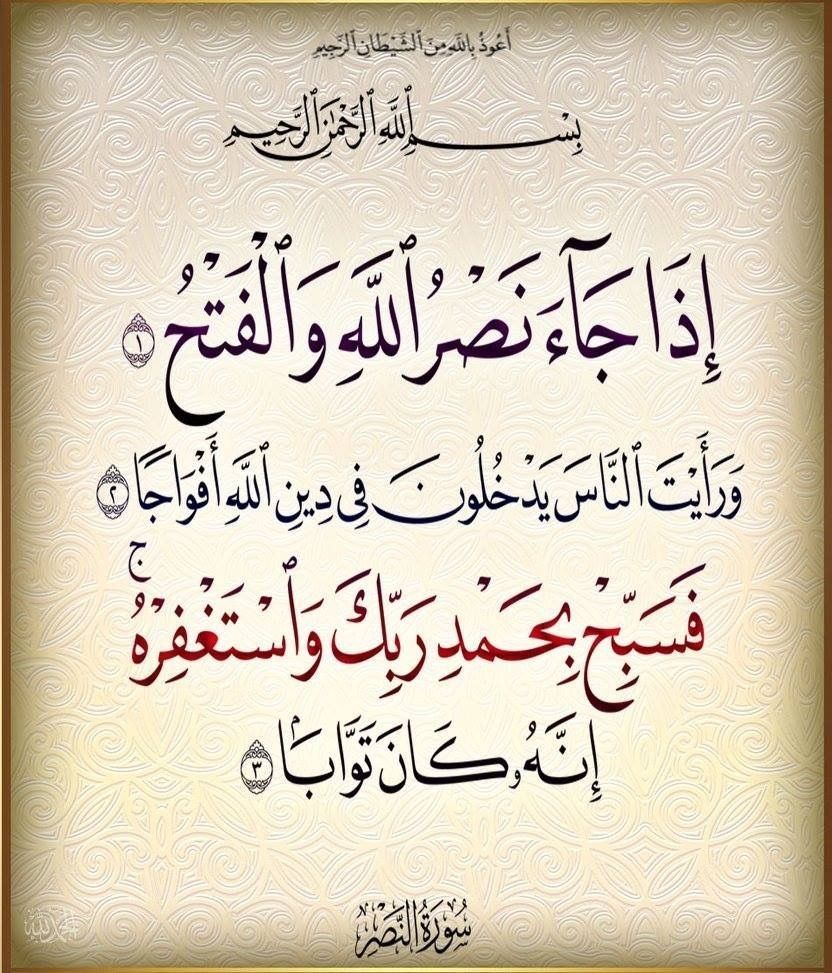 أَعُوذُ بِاللَّهِ مِنَ ٱلشَّيْطَانِ ٱلرَّجِيمِ
بِسْمِ ٱللَّهِ ٱلرَّحْمَٰنِ ٱلرَّحِيمِ
إِذَا جَآءَ نَصْرُ ٱللَّهِ وَٱلْفَتْحُ ١
وَرَأَيْتَ ٱلنَّاسَ يَدْخُلُونَ فِى دِينِ ٱللَّهِ أَفْوَاجًا ٢
فَسَبِّحْ بِحَمْدِ رَبِّكَ وَٱسْتَغْفِرْهُ ۚ
إِنَّهُۥ كَانَ تَوَّابَۢا ٣
سُورَةُ النَّصْرِ
الحمد لله